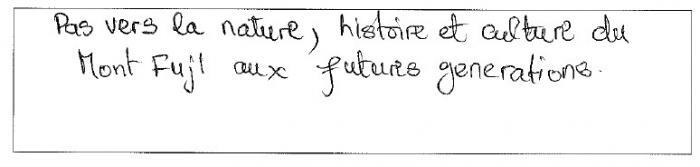 Pas vers la nature, histoire et culture du
Mont Fuji aux futures generations.